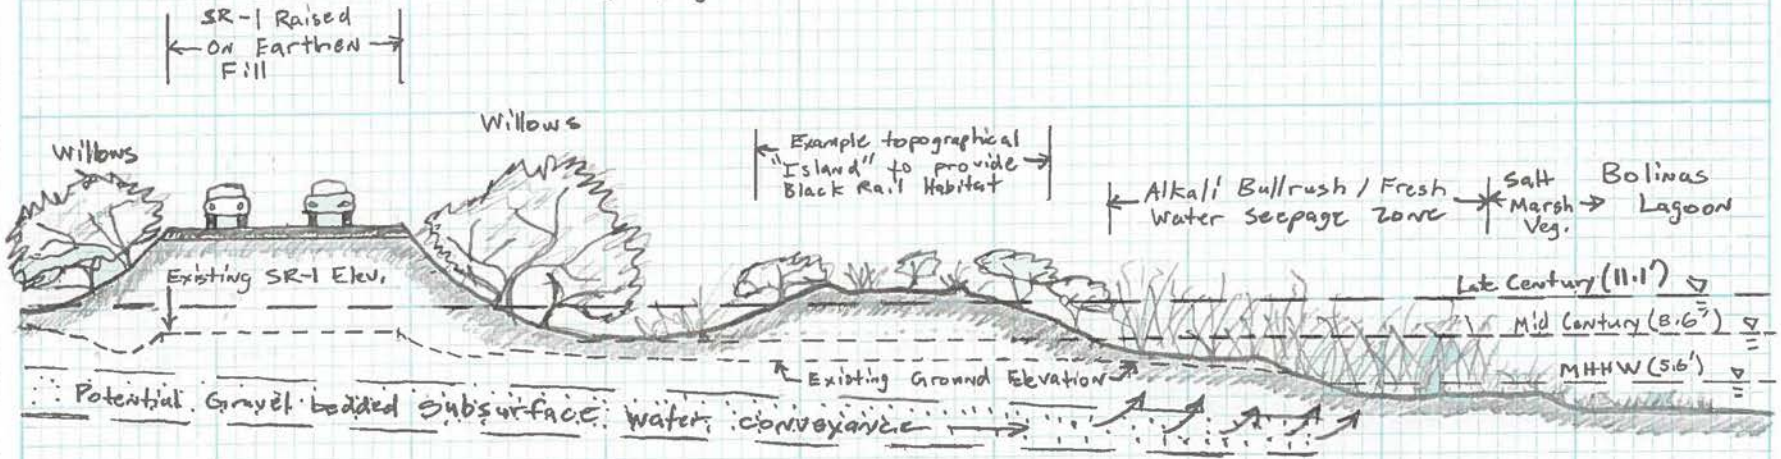 SR-1 Raised
On Earthen
Fill
Willows
Willows
Example topographical
"Island" to provide
Black Rail Habitat
Alkali Bullrush / Fresh
Water Seepage Zone
Salt
Marsh
Veg.
Bolinas
Lagoon
Existing SR-1 Elev.
Late Century (11.1')
Mid Century (8.6')
MHHW (5.6')
Existing Ground Elevation
Potential Gravel bedded subsurface water conveyance